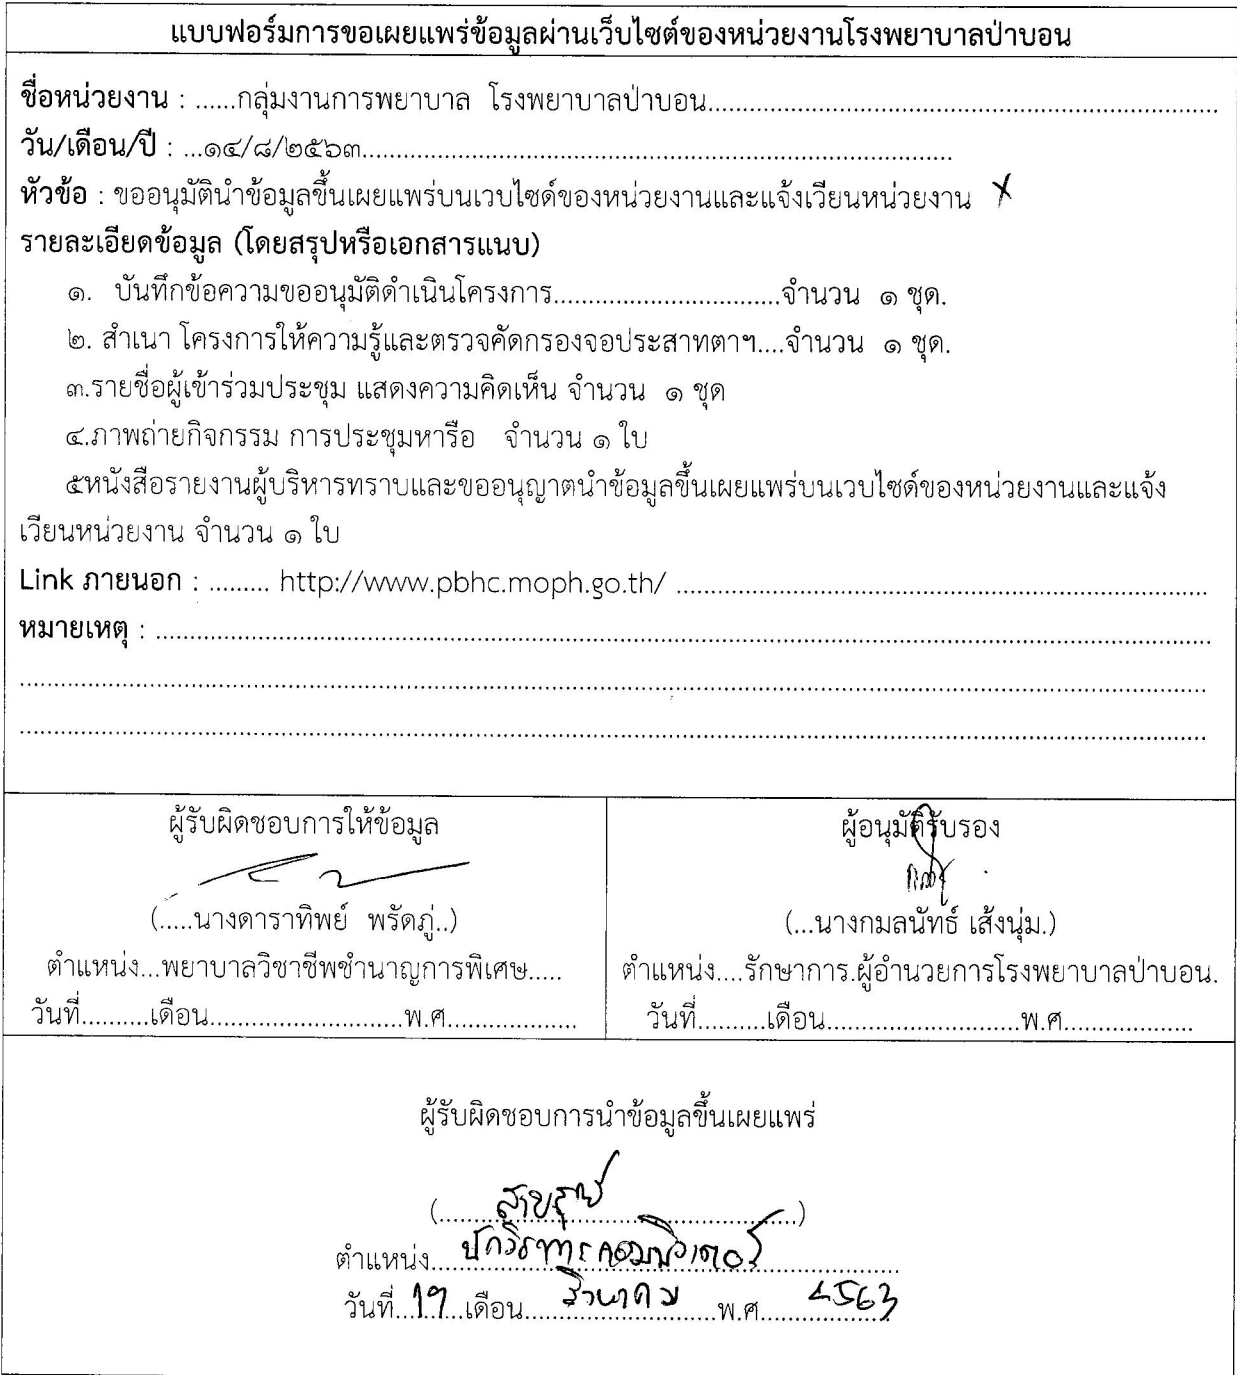 แบบฟอร์มการขอเผยแพร่ข้อมูลผ่านเว็บไซต์ของหน่วยงานโรงพยาบาลป่าบอน
ชื่อหน่วยงาน : ......กลุ่มงานการพยาบาล โรงพยาบาลป่าบอน...........................................................................
วัน/เดือน/ปี : ...๑๔/๘/๒๕๖๓.......................................................................................
หัวข้อ : ขออนุมัตินำข้อมูลขึ้นเผยแพร่บนเวบไซด์ของหน่วยงานและแจ้งเวียนหน่วยงาน X
รายละเอียดข้อมูล (โดยสรุปหรือเอกสารแนบ)
๑. บันทึกข้อความขออนุมัติดำเนินโครงการ.................................จำนวน ๑ ชุด.
๒. สำเนา โครงการให้ความรู้และตรวจคัดกรองจอประสาทตาฯ....จำนวน ๑ ชุด.
๓.รายชื่อผู้เข้าร่วมประชุม แสดงความคิดเห็น จำนวน ๑ ชุด
๔.ภาพถ่ายกิจกรรม การประชุมหารือ จำนวน ๑ ใบ
๕หนังสือรายงานผู้บริหารทราบและขออนุญาตนำข้อมูลขึ้นเผยแพร่บนเวบไซด์ของหน่วยงานและแจ้ง
เวียนหน่วยงาน จำนวน ๑ ใบ
Link ภายนอก : ......... http://www.pbhc.moph.go.th/ ..............................................................................
หมายเหตุ : ...........................................................................................................................................................
..............................................................................................................................................................................
..............................................................................................................................................................................
ผู้รับผิดชอบการให้ข้อมูล
(.....นางดาราทิพย์ พรัดภู่..)
ตำแหน่ง...พยาบาลวิชาชีพชำนาญการพิเศษ.....
วันที่..........เดือน............................พ.ศ...................
ผู้อนุมัติรับรอง
(...นางกมลนัทธ์ เส้งนุ่ม.)
ตำแหน่ง....รักษาการ.ผู้อำนวยการโรงพยาบาลป่าบอน.
วันที่..........เดือน............................พ.ศ...................
ผู้รับผิดชอบการนำข้อมูลขึ้นเผยแพร่
(....................................................)
ตำแหน่ง...นักวิชาการคอมพิวเตอร์
วันที่...19...เดือน...สิงหาคม...พ.ศ...2563